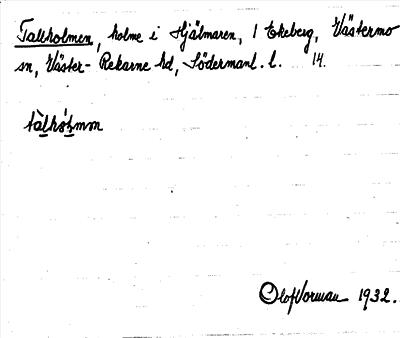 Tallholmen, holme i Hjälmaren, 1 Ekeberg, Västermo
sn, Väster-Rekarne hd, Södermanl. l. 14.
tàlhól̥mɷn
Olof Vorman 1932.